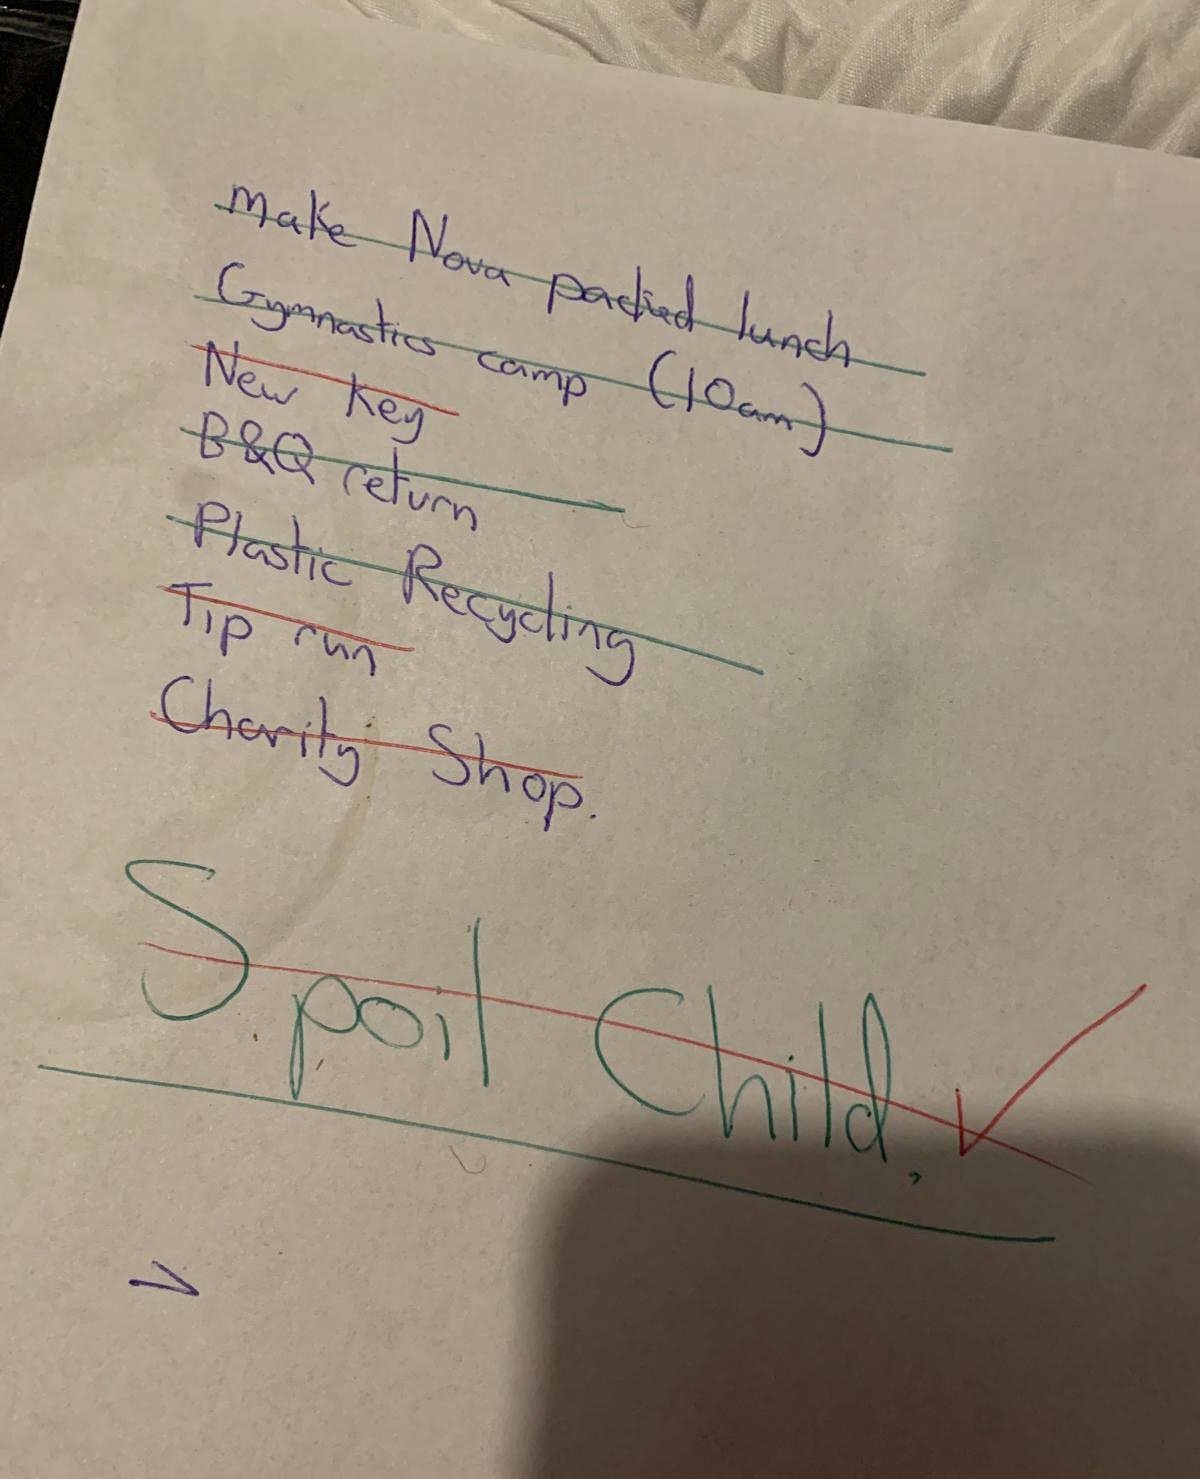 Make Nova packed lunch
Gymnastics camp (10am)
New key
B&Q return
Plastic Recycling
Tip run
Charity Shop.
Spoil Child.